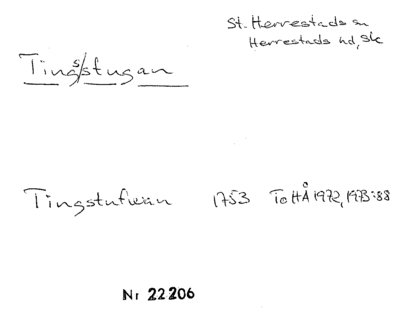 St. Herrestads sn
Herrestads hd, Sk
Tings/stugan
Tingstufwan 1753 ToHÅ 1972, 1973:88
Nr 22206